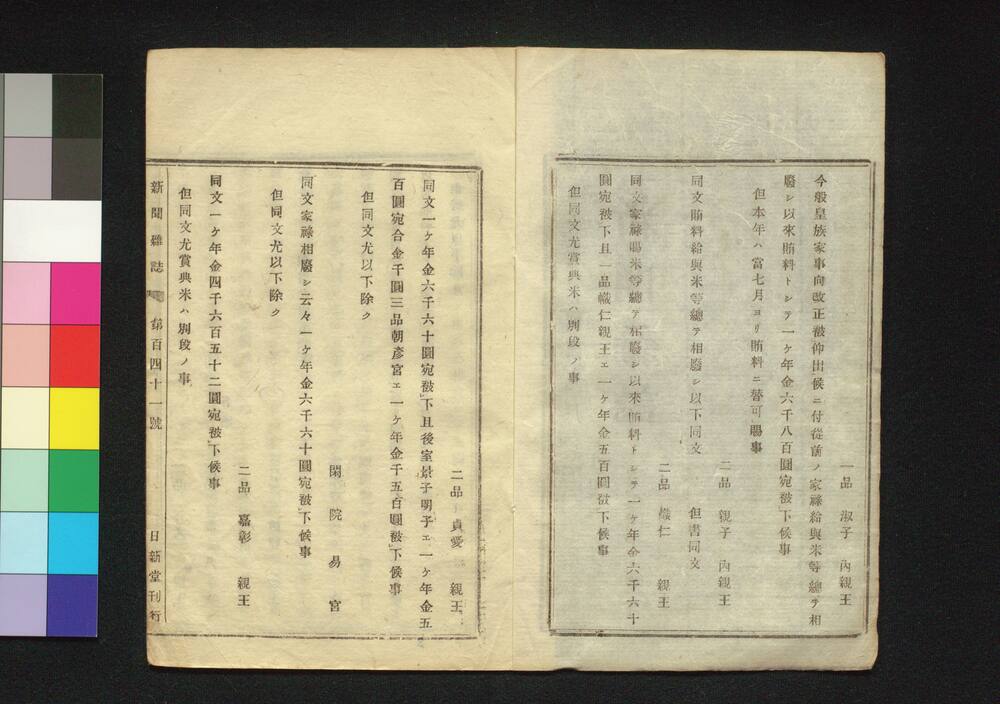 一品 淑子 內親王
今般皇族家事向改正被仰出候ニ付從前ノ家祿給與米等總テ相
廢シ以來賄料トシテ一ケ年金六千八百圓宛被下候事
但本年ハ當七月ヨリ賄料ニ替可賜事
二品 親子 內親王
同文賄料給與米等總テ相廢シ以下同文 但書同文
二品 幟仁 親王
同文家祿賜米等總テ相廢シ以來賄料トシテ一ケ年金六千六十
圓宛被下且一品幟仁親王エ一ケ年金五百圓被下候事
但同文尤賞典米ハ別段ノ事
二品 貞愛 親王
同文一ケ年金六千六十圓宛被下且後室景子明子エ一ケ年金五
百圓宛合金千圓三品朝彥宮エ一ケ年金千五百圓被下候事
但同文尤以下除ク
閑院易宮
同文家祿相廢シ云々一ケ年金六千六十圓宛被下候事
但同文尤以下除ク
二品 嘉彰 親王
同文一ケ年金四千六百五十二圓宛被下候事
但同文尤賞典米ハ別段ノ事
新聞雜誌 第百四十一號 日新堂刊行